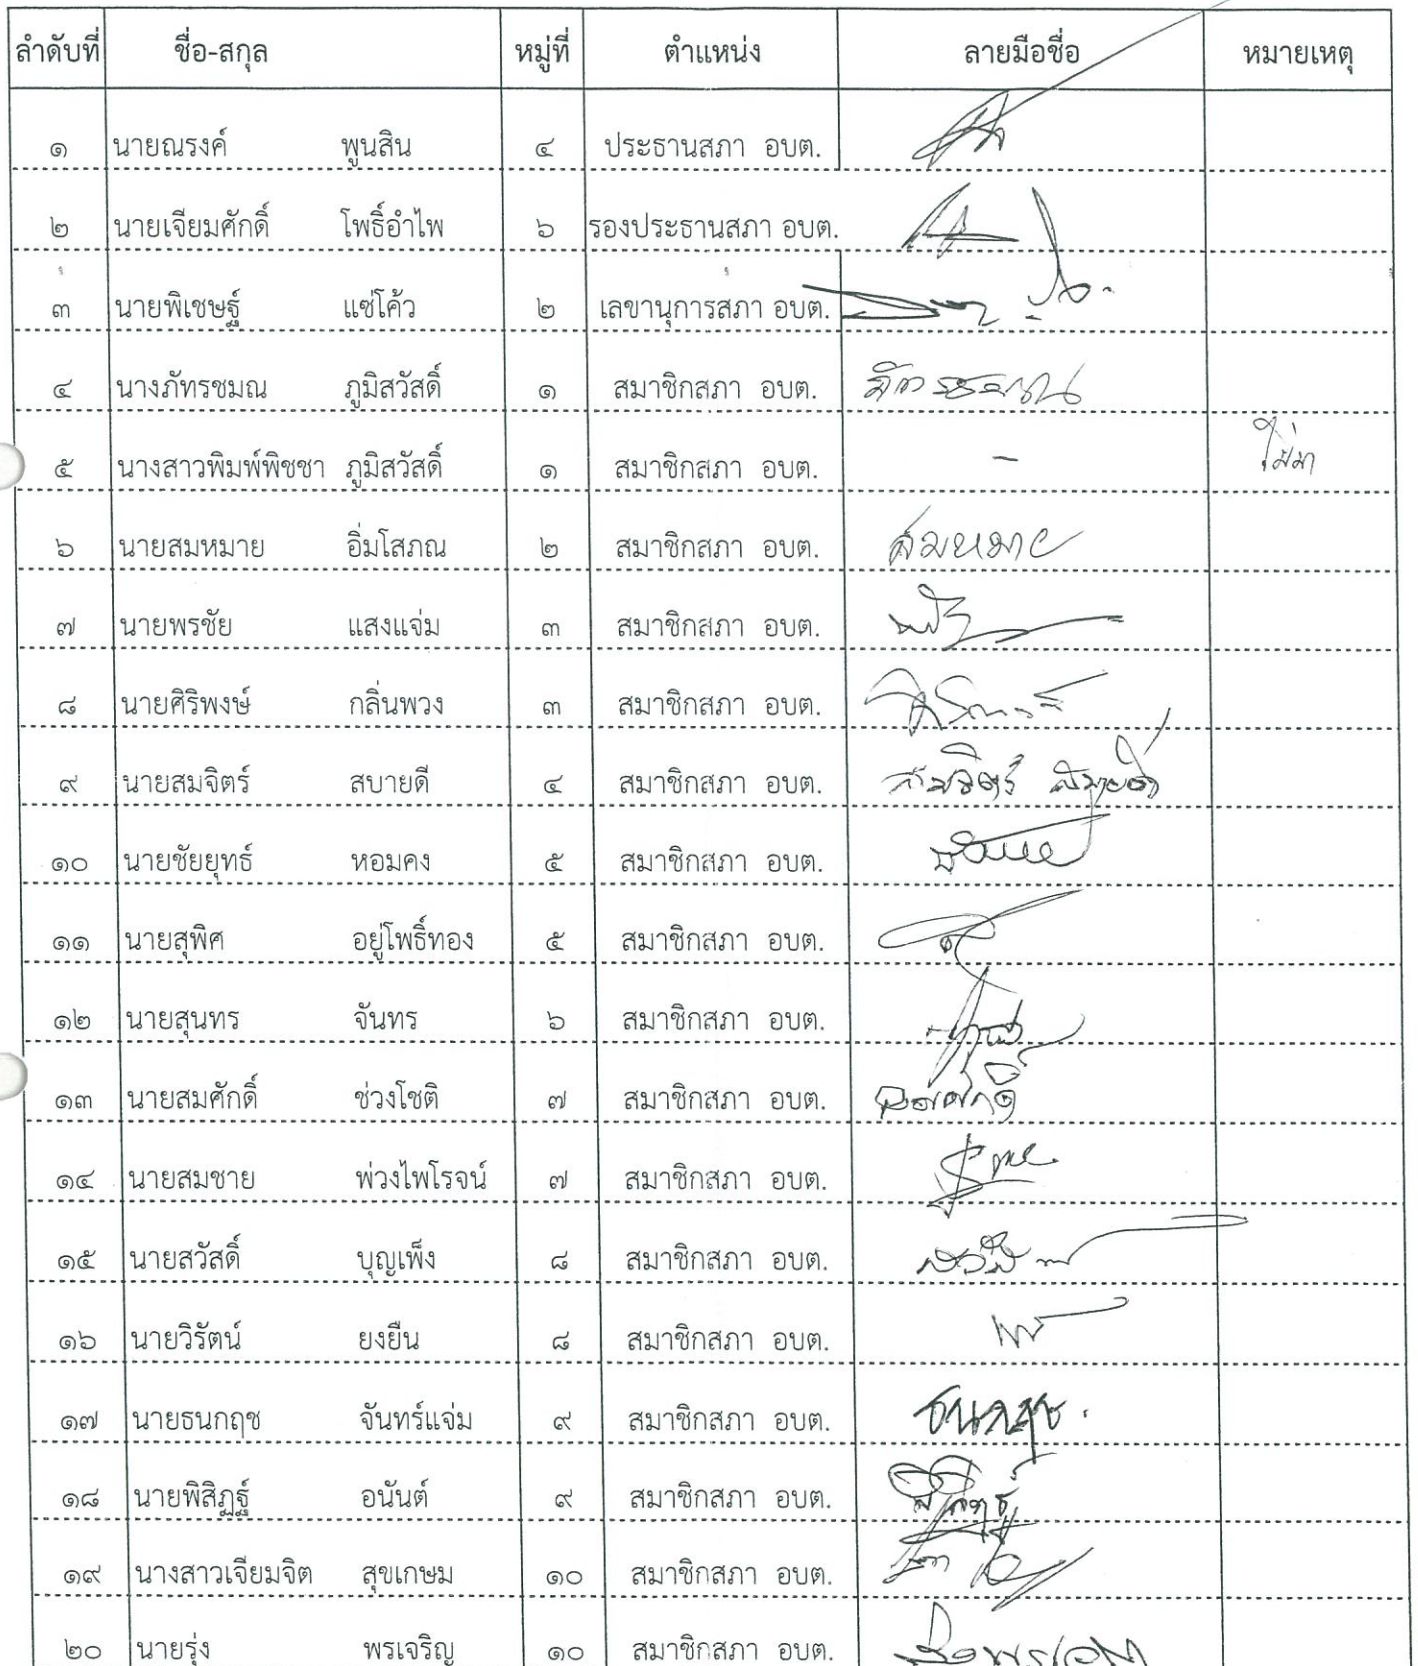 ลำดับที่ ชื่อ-สกุล หมู่ที่ ตำแหน่ง ลายมือชื่อ หมายเหตุ
๑ นายณรงค์ พูนสิน ๔ ประธานสภา อบต.
๒ นายเจียมศักดิ์ โพธิ์อำไพ ๖ รองประธานสภา อบต.
๓ นายพิเชษฐ์ แซ่โค้ว ๒ เลขานุการสภา อบต.
๔ นางภัทรชมณ ภูมิสวัสดิ์ ๑ สมาชิกสภา อบต.
๕ นางสาวพิมพ์พิชชา ภูมิสวัสดิ์ ๑ สมาชิกสภา อบต. - ไม่มา
๖ นายสมหมาย อิ่มโสภณ ๒ สมาชิกสภา อบต. สมหมาย
๗ นายพรชัย แสงแจ่ม ๓ สมาชิกสภา อบต.
๘ นายศิริพงษ์ กลิ่นพวง ๓ สมาชิกสภา อบต.
๙ นายสมจิตร์ สบายดี ๔ สมาชิกสภา อบต. สมจิตร์ สบายดี
๑๐ นายชัยยุทธ์ หอมคง ๕ สมาชิกสภา อบต.
๑๑ นายสุพิศ อยู่โพธิ์ทอง ๕ สมาชิกสภา อบต.
๑๒ นายสุนทร จันทร ๖ สมาชิกสภา อบต.
๑๓ นายสมศักดิ์ ช่วงโชติ ๗ สมาชิกสภา อบต. สมศักดิ์
๑๔ นายสมชาย พ่วงไพโรจน์ ๗ สมาชิกสภา อบต.
๑๕ นายสวัสดิ์ บุญเพ็ง ๘ สมาชิกสภา อบต.
๑๖ นายวิรัตน์ ยงยืน ๘ สมาชิกสภา อบต.
๑๗ นายธนกฤช จันทร์แจ่ม ๙ สมาชิกสภา อบต. ธนกฤช
๑๘ นายพิสิฏฐ์ อนันต์ ๙ สมาชิกสภา อบต.
๑๙ นางสาวเจียมจิต สุขเกษม ๑๐ สมาชิกสภา อบต.
๒๐ นายรุ่ง พรเจริญ ๑๐ สมาชิกสภา อบต.